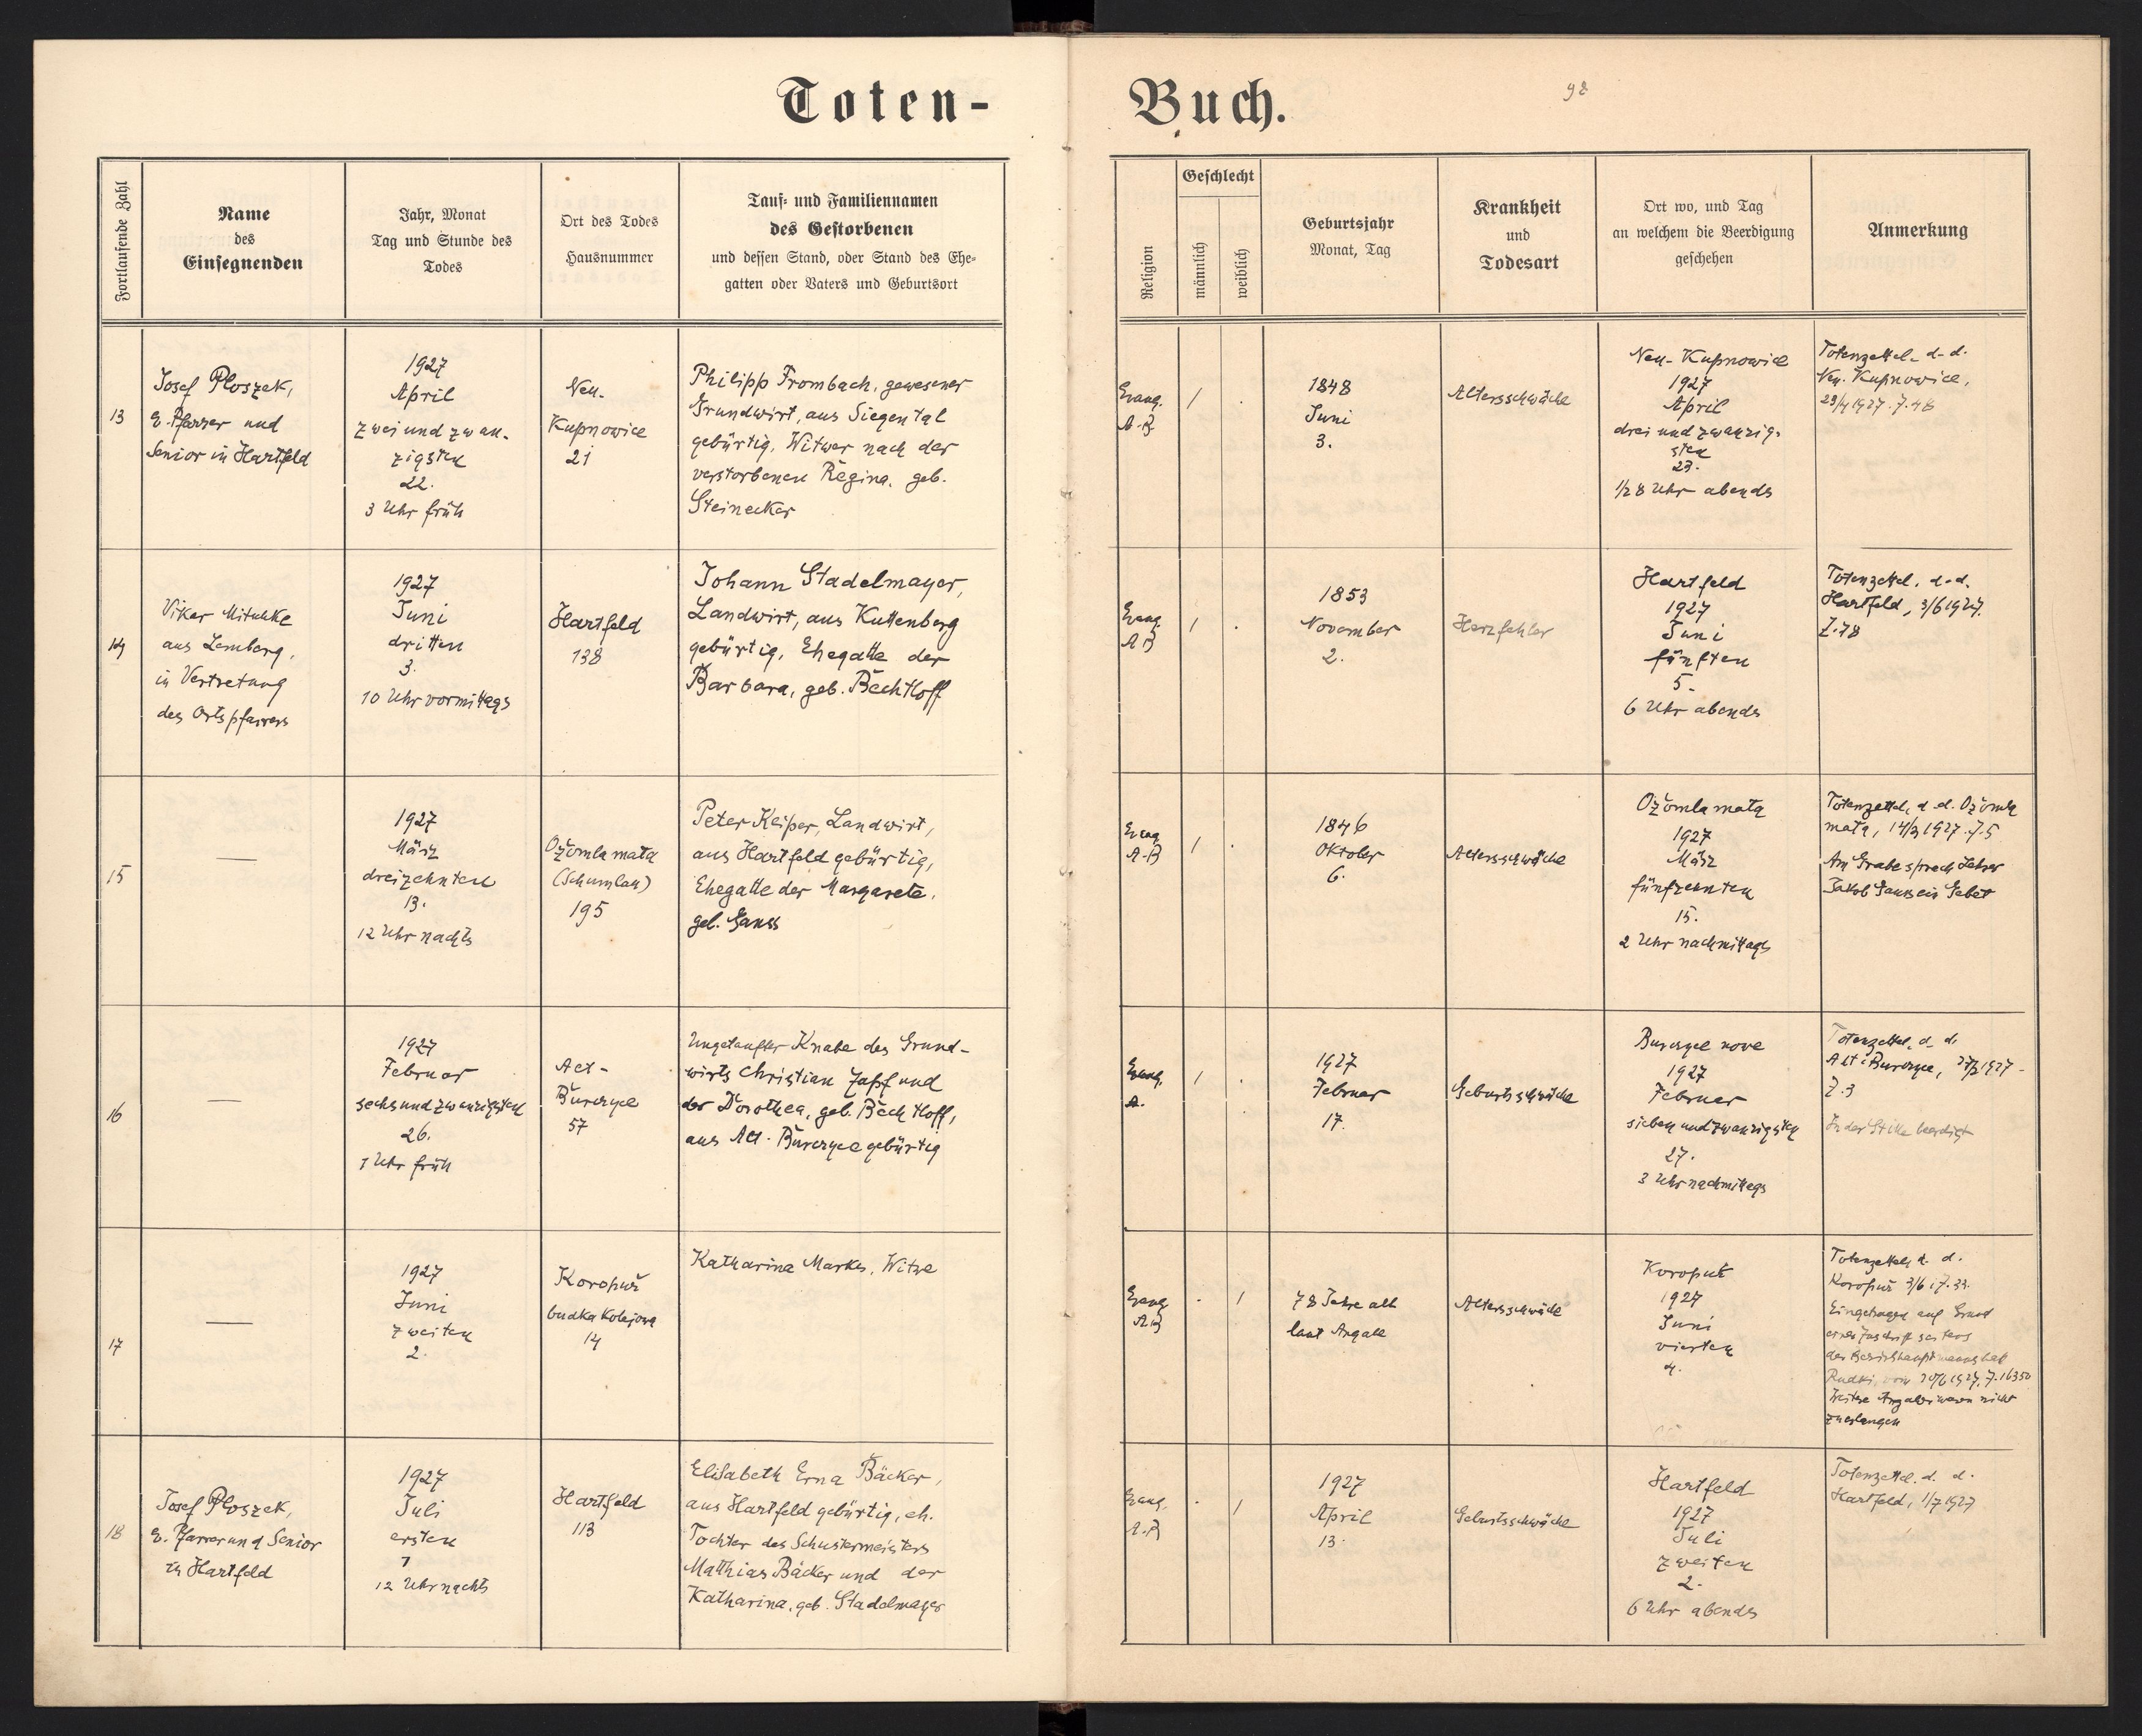 Toten-
Buch.
98
Fortlaufende Zahl
Name
des
Einsegnenden
Jahr, Monat
Tag und Stunde des
Todes
Ort des Todes
Hausnummer
Tauf- und Familiennamen
des Gestorbenen
und dessen Stand, oder Stand des Ehe-
gatten oder Vaters und Geburtsort
Religion
Geschlecht
männlich
weiblich
Geburtsjahr
Monat, Tag
Krankheit
und
Todesart
Ort wo, und Tag
an welchem die Beerdigung
geschehen
Anmerkung
13
Josef Ploszek,
E. Pfarrer und
Senior in Hartfeld
1927
April
zwei und zwan-
zigsten
22.
3 Uhr früh
Neu-
Kupnowice
21
Philipp Frombach, gewesener
Grundwirt, aus Siegental
gebürtig, Witwer nach der
verstorbenen Regina, geb.
Steinecker
Evang.
A.B.
/
.
1848
Juni
3.
Altersschwäche
Neu-Kupnowice
1927
April
drei und zwanzig-
sten
23.
1/2 8 Uhr abends
Totenzettel d. d.
Neu-Kupnowice,
23/4 1927. Z. 48
14
Vikar Mitschke
aus Lemberg,
in Vertretung
des Ortspfarrers
1927
Juni
dritten
3.
10 Uhr vormittags
Hartfeld
138
Johann Stadelmayer,
Landwirt, aus Kuttenberg
gebürtig, Ehegatte der
Barbara, geb. Bechtloff
Evang.
A B
/
.
1853
November
2.
Herzfehler
Hartfeld
1927
Juni
fünften
5.
6 Uhr abends
Totenzettel, d. d.
Hartfeld, 3/6 1927.
Z. 78
15
—
1927
März
dreizehnten
13.
12 Uhr nachts
Ożomla mała
(Schumlau)
195
Peter Keiper, Landwirt,
aus Hartfeld gebürtig,
Ehegatte der Margarete,
geb. Ganss
Evang
A.B
/
.
1846
Oktober
6.
Altersschwäche
Ożomla mała
1927
März
fünfzehnten
15.
2 Uhr nachmittags
Totenzettel, d. d. Ożomla
mała, 14/3 1927. Z. 5
Am Grabe sprach Lehrer
Jakob Ganss ein Gebet
16
—
1927
Februar
sechsundzwanzigsten
26.
1 Uhr früh
Alt-
Burczyce
57
Ungetaufter Knabe des Grund-
wirts Christian Zapf und
der Dorothea, geb. Bechtloff,
aus Alt-Burczyce gebürtig
Evang,
A.
/
.
1927
Februar
17.
Geburtsschwäche
Burczyce nowe
1927
Februar
sieben und zwanzigsten
27.
3 Uhr nachmittags
Totenzettel, d. d.
Alt-Burczyce, 27/2 1927 -
Z. 3
In der Stille beerdigt
17
—
1927
Juni
zweiten
2.
Koropuż
budka kolejowa
14
Katharina Markes, Witwe
Evang
A.B
.
/
78 Jahre alt
laut Angabe
Altersschwäche
Koropuż
1927
Juni
vierten
4.
Totenzettel, d. d.
Koropuż 3/6, Z. 33.
Eingetragen auf Grund
einer Zuschrift seitens
der Bezirkshauptmannschaft
Rudki, vom 20/6 1927, Z. 16350
Weitere Angaben waren nicht
zu erlangen
18
Josef Ploszek,
E. Pfarrer und Senior
in Hartfeld
1927
Juli
ersten
1
12 Uhr nachts
Hartfeld
113
Elisabeth Erna Bäcker,
aus Hartfeld gebürtig, eh.
Tochter des Schustermeisters
Matthias Bäcker und der
Katharina, geb. Stadelmayer
Evang.
A.B
.
/
1927
April
13.
Geburtsschwäche
Hartfeld
1927
Juli
zweiten
2.
6 Uhr abends
Totenzettel, d. d.
Hartfeld, 1/7 1927